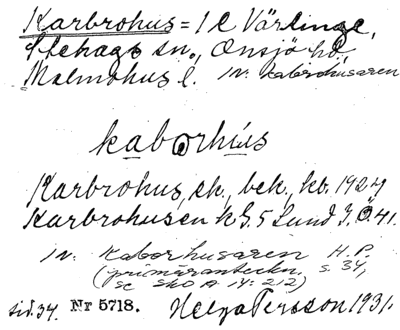 Karbrohus = 1 l Värlinge,
Stehags sn., Onsjö hd,
Malmöhus l. in. kabrohusaren
kaborhus
Karbrohus, sk., bek., kb. 1924
Karbrohusen k G. 5 Lund I. Ö. 41.
in. kaborhusaren H.P.
(primäranteckn. s. 34,
se SkO A 14: 212)
sid. 34. Nr 5718. Helge Persson 1931.